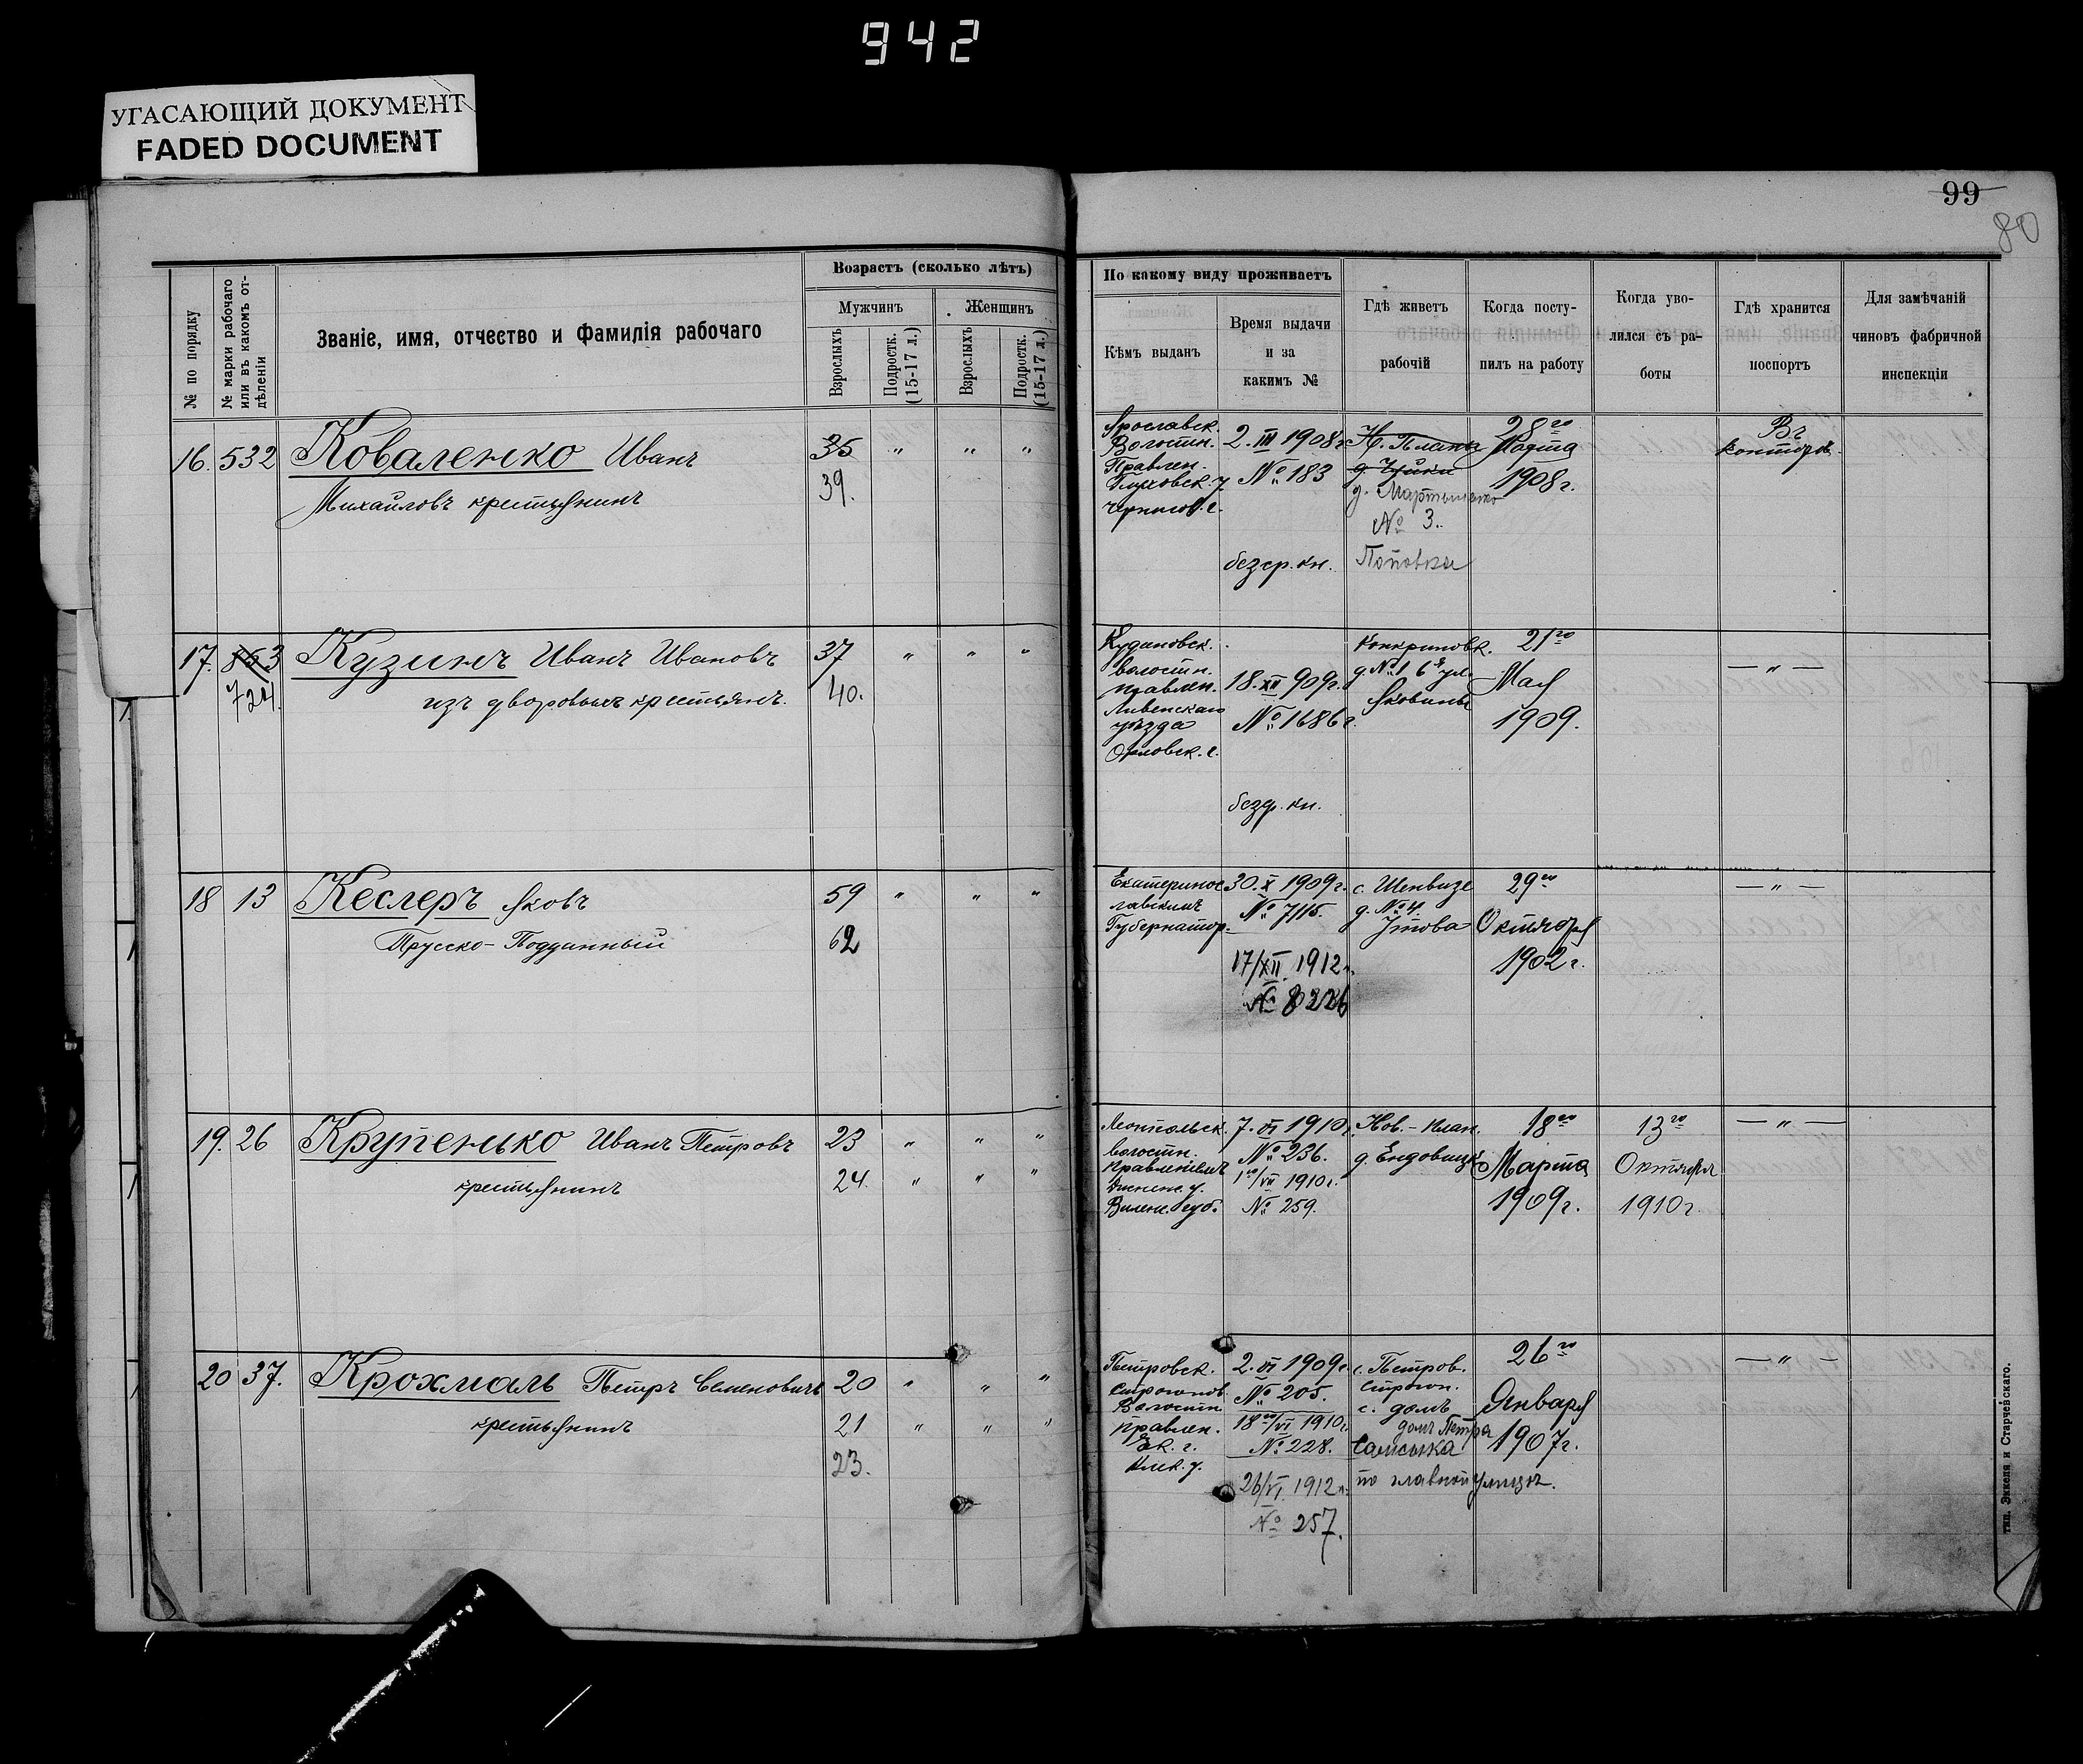 942
УГАСАЮЩИЙ ДОКУМЕНТ
FADED DOCUMENT
99
80
№ по порядку
№ марки рабочаго или въ какомъ отдѣленіи
Званіе, имя, отчество и фамилія рабочаго
Возрастъ (сколько лѣтъ)
Мужчинъ
Женщинъ
Взрослыхъ
Подростк. (15-17 л.)
Взрослыхъ
Подростк. (15-17 л.)
По какому виду проживаетъ
Кѣмъ выданъ
Время выдачи
и за
какимъ №
Гдѣ живетъ
рабочій
Когда посту-
пилъ на работу
Когда уво-
лился съ ра-
боты
Гдѣ хранится
поспортъ
Для замѣчаній
чиновъ фабричной
инспекціи
16. 532 Коваленко Иванъ 35 " " "
Михайловъ крестьянинъ 39.
Ярославск.
Волостн.
Правлен.
Глуховск. у.
Чернигов. г.
2. III 1908 г.
№ 183
безср. кн.
Н. Планы
д. Мартыненко
№ 3.
Поповка
28го
Марта
1908 г.
Въ
конторѣ.
17. 853 Кузинъ Иванъ Ивановъ 37 " " "
724. изъ дворовыхъ крестьянъ. 40.
волостн.
правлен.
Ливенскаго
уѣзда
Орловск. г.
18. XII 909 г.
№ 1686
безср. кн.
д. № 1 6я ул.
21го
Мая
1909.
— " —
18 13 Кеслеръ Яковъ 59 " " "
Прусско-Подданный 62
Екатеринос
лавскимъ
Губернатор.
30. X 1909 г.
№ 7115.
17/XII 1912 г.
№ 8226
с. Шенвизе
д. № 4
29го
Октября
1902 г.
— " —
19. 26 Крупенько Иванъ Петровъ 23 " " "
крестьянинъ 24. " " "
Леонпольск.
волостн.
правленіемъ
Дисненс. у.
Виленс. губ.
7. VI 1910 г.
№ 236.
1го/VII 1910 г.
№ 259.
Нов.-план.
д. Ендовицк
18го
Марта
1909 г.
13го
Октября
1910 г.
— " —
20 37. Крохмаль Петръ Семеновичъ 20 " " "
крестьянинъ 21 " " "
23.
Петровск.
Волостн.
правлен.
Ек. г.
Алек. у.
2. VI 1909 г.
№ 205.
18го/VI 1910 г.
№ 228.
26/VI 1912 г.
№ 257.
с. Петров.
с. домъ
домъ Петра
по главной улицѣ.
26го
Января
1907 г.
— " —
тип. Эккеля и Старчевскаго.